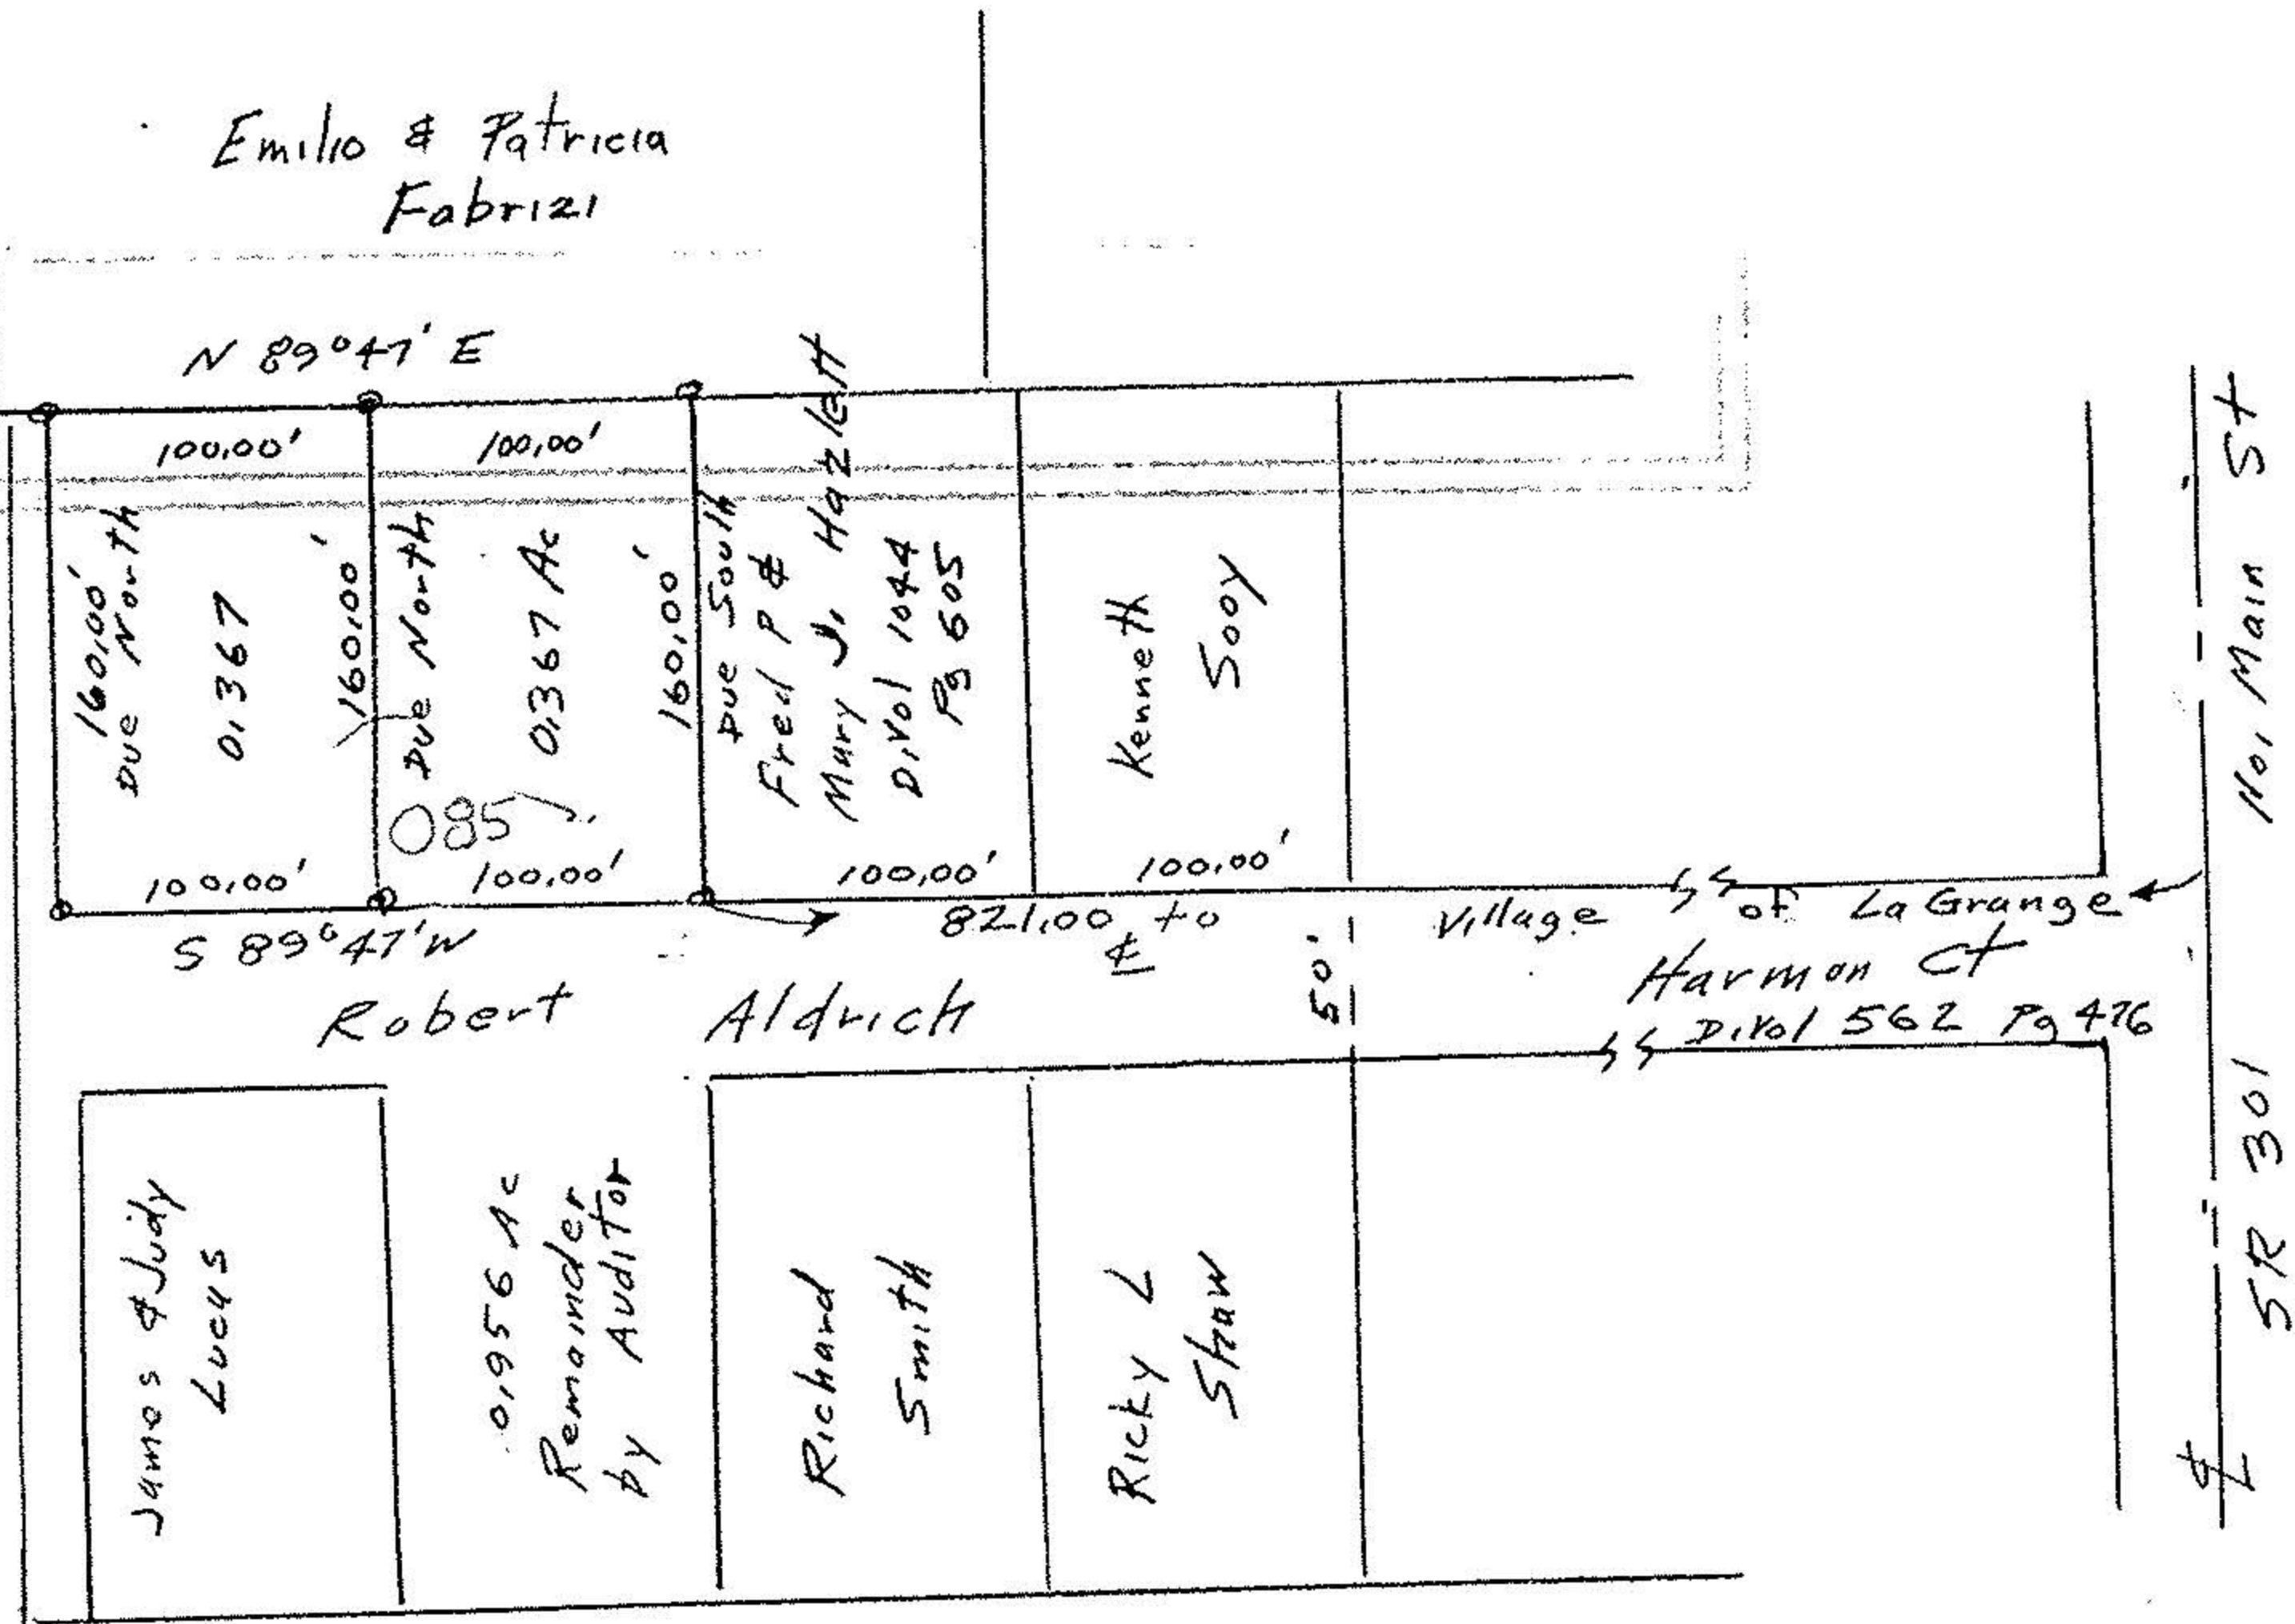 Emilio & Patricia
Fabrizi
N 89°47' E
100.00'
100.00'
160.00'
Due North
0.367
160.00'
Due North
0.367 Ac
160.00'
Due South
Fred P &
Mary J. Hazlett
D.Vol 1044
Pg 605
Kenneth
Sooy
085
100.00'
100.00'
100.00'
100.00'
S 89°47' W
821.00 to
℄
Village of LaGrange
50'
Harmon Ct
D.Vol 562 Pg 476
Robert Aldrich
No. Main St
James & Judy
Lucas
0.956 Ac
Remainder
by Auditor
Richard
Smith
Ricky L
Shaw
℄ SR 301